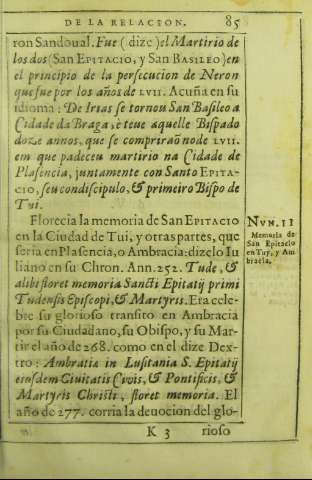 DE LA RELACION. 85
ron Sandoual. Fue (dize) el Martirio de
los dos (San EPITACIO, y San BASILEO) en
el principio de la persecucion de Neron
que fue por los años de LVII. Acuña en su
idioma: De Irias se tornou San Basileo a
Cidade da Braga, e teue aquelle Bispado
doze annos, que se compriraõ no de LVII.
em que padeceu martirio na Cidade de
Plasencia, juntamente con Santo EPITA-
CIO, seu condiscipulo, & primeiro Bispo de
Tui.
Florecia la memoria de San EPITACIO
en la Ciudad de Tui, y otras partes, que
seria en Plasencia, o Ambracia: dizelo Iu
liano en su Chron. Ann. 252. Tude, &
alibi floret memoria Sancti Epitatij primi
Tudensis Episcopi, & Martyris. Era cele-
bre su glorioso transito en Ambracia
por su Ciudadano, su Obispo, y su Mar-
tir el año de 268. como en el dize Dex-
tro: Ambratia in Lusitania S. Epitatij
eiusdem Ciuitatis Civis, & Pontificis, &
Martyris Christi, floret memoria. El
año de 277. corria la deuocion del glo-
K 3 rioso
NVN. II
Memoria de
San Epitacio
en Tuy, y Am
bracia.